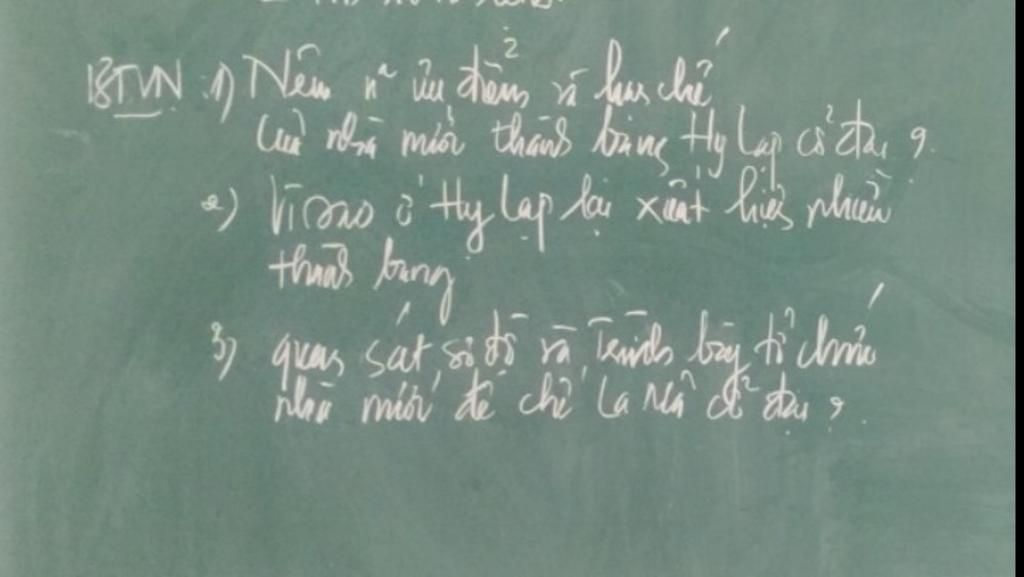 BTVN 1) Nêu n~ ưu điểm và hạn chế
của nhà nước thành bang Hy Lạp cổ đại ?
2) Vì sao ở Hy Lạp lại xuất hiện nhiều
thành bang
3) quan sát sơ đồ và trình bày tổ chức
nhà nước đế chế La Mã cổ đại ?